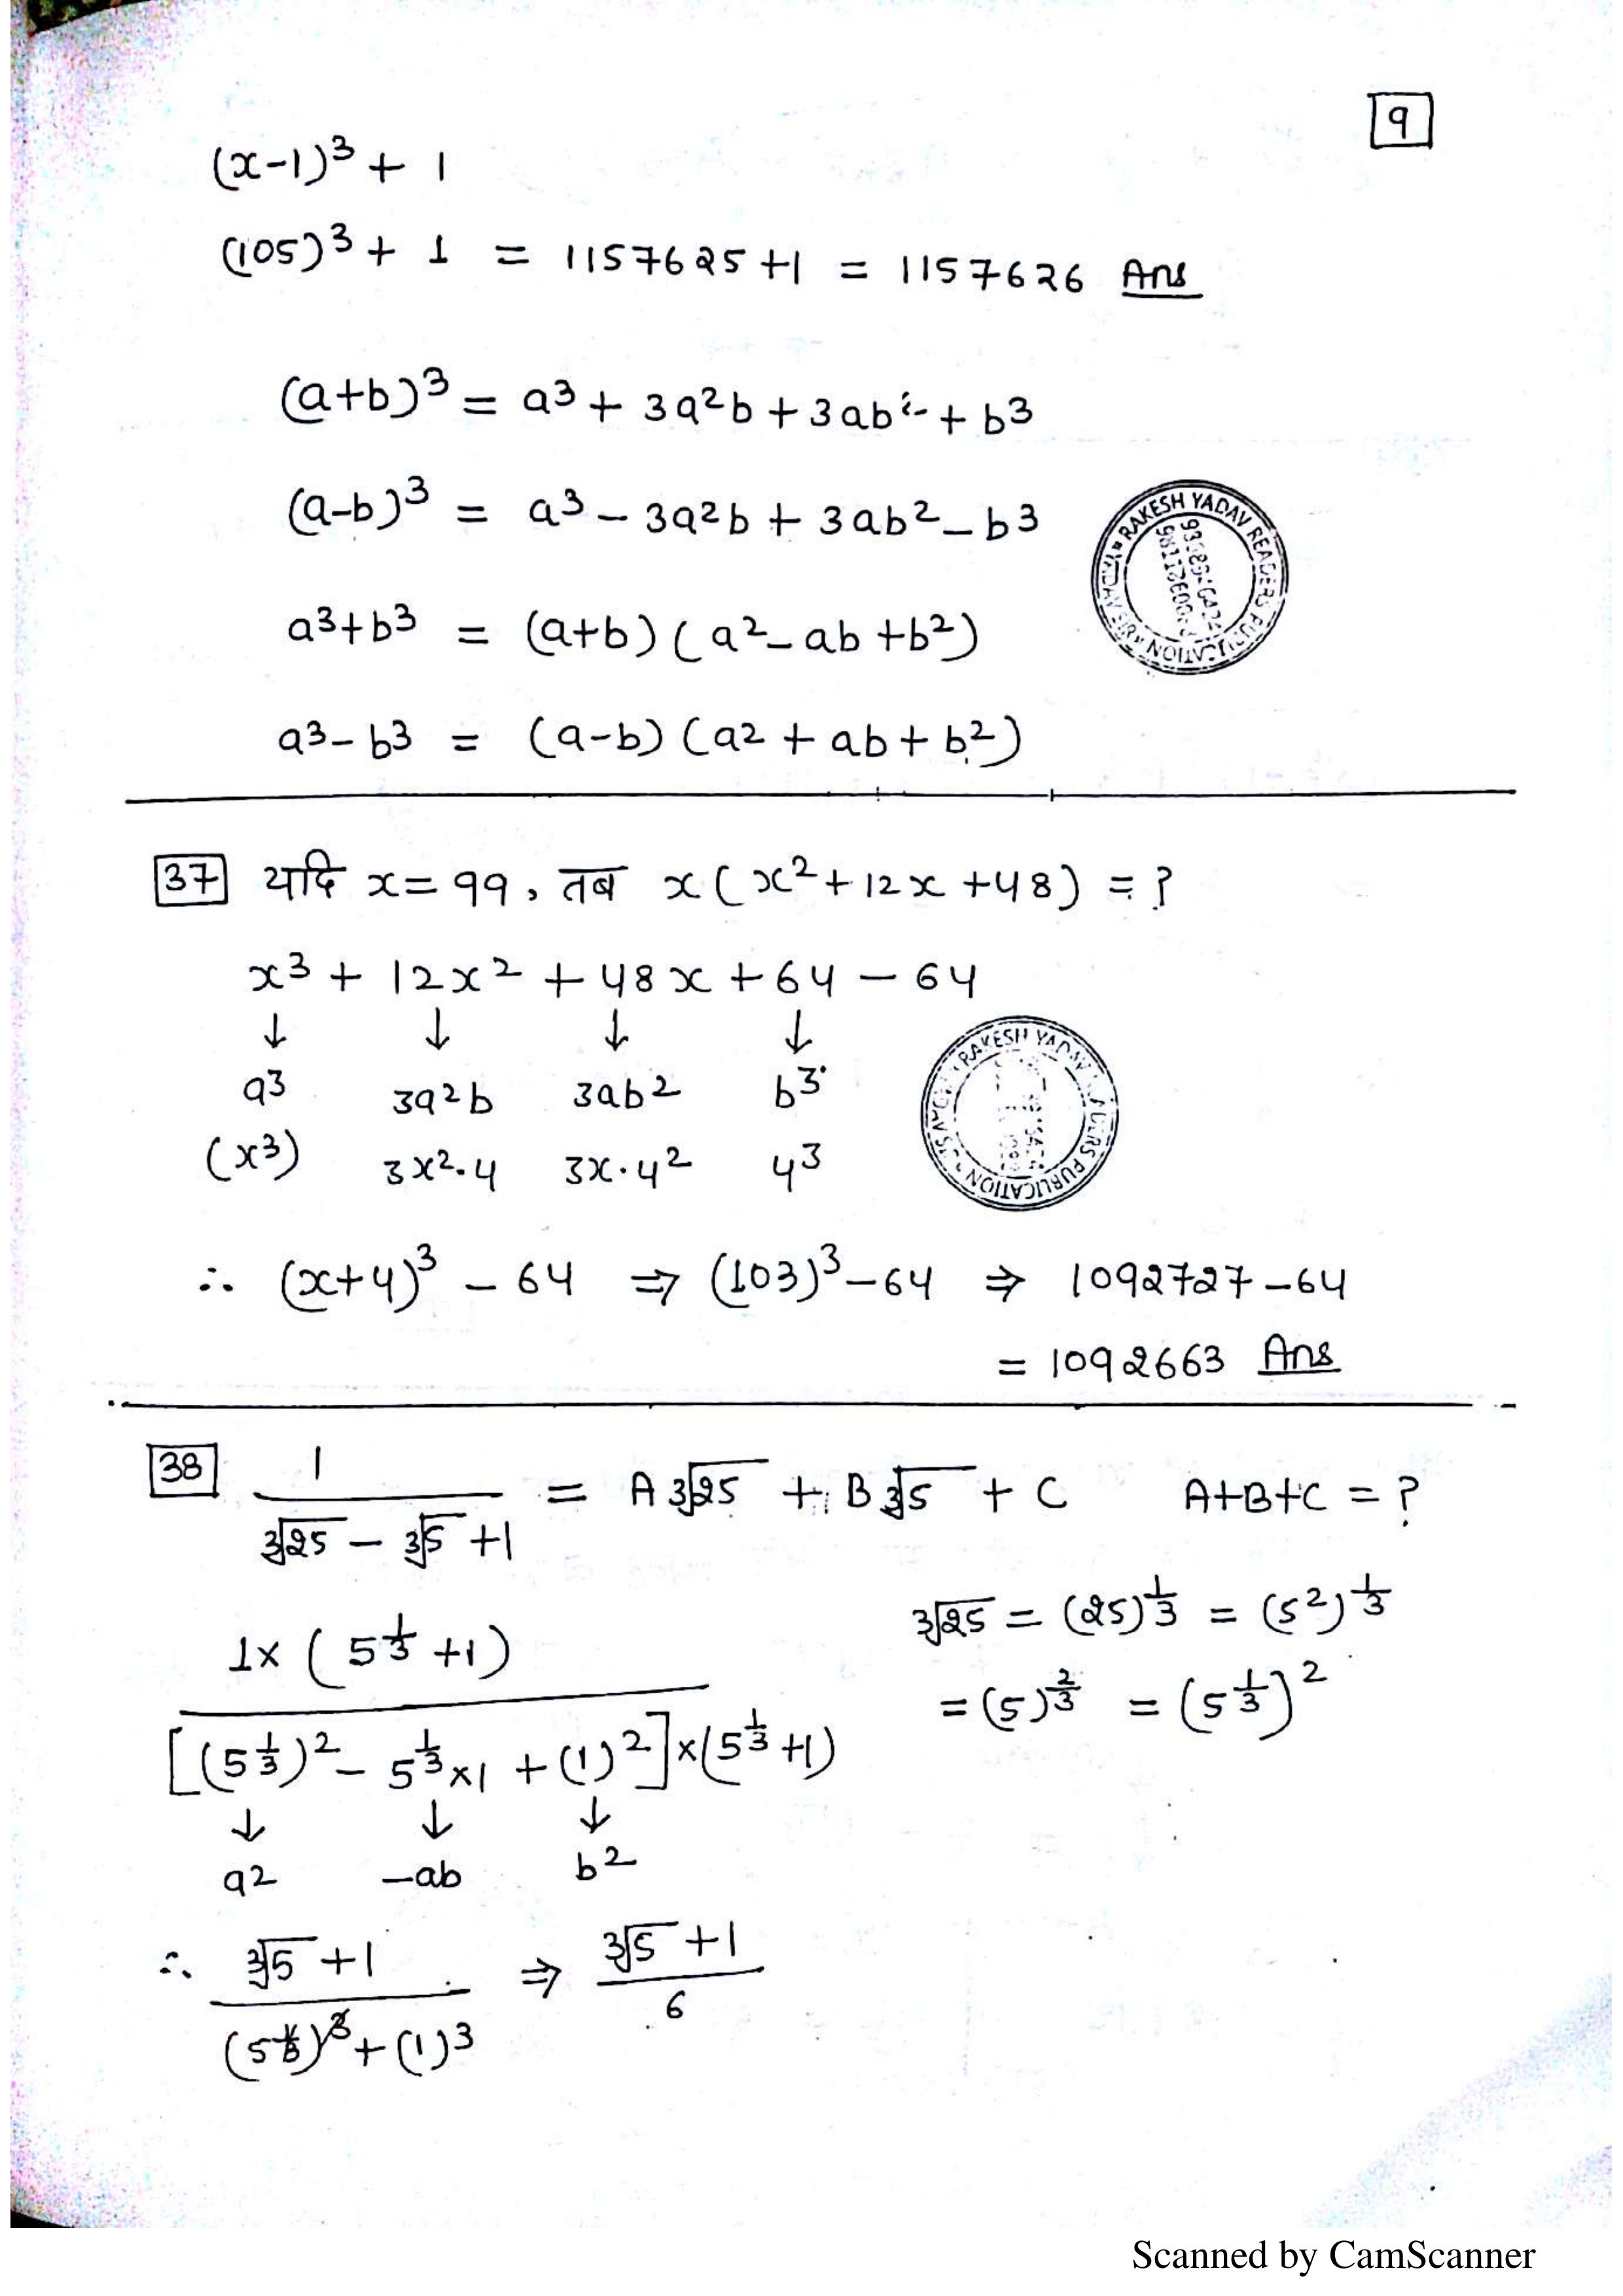 9
(x-1)³ + 1
(105)³ + 1 = 1157625+1 = 1157626 Ans
(a+b)³ = a³ + 3a²b + 3ab² + b³
(a-b)³ = a³ - 3a²b + 3ab² - b³
RAKESH YADAV READERS PUBLICATION
a³+b³ = (a+b) (a² - ab + b²)
a³ - b³ = (a-b) (a² + ab + b²)
37 यदि x = 99, तब x(x² + 12x + 48) = ?
x³ + 12x² + 48x + 64 - 64
↓ ↓ ↓ ↓
a³ 3a²b 3ab² b³
(x³) 3x².4 3x.4² 4³
RAKESH YADAV READERS PUBLICATION
∴ (x+4)³ - 64 ⇒ (103)³ - 64 ⇒ 1092727 - 64
= 1092663 Ans
38 1/(∛25 - ∛5 + 1) = A∛25 + B∛5 + C A+B+C = ?
∛25 = (25)^(1/3) = (5²)^(1/3)
= (5)^(2/3) = (5^(1/3))²
1× (5^(1/3) + 1)
[(5^(1/3))² - 5^(1/3)×1 + (1)²]×(5^(1/3) + 1)
↓ ↓ ↓
a² -ab b²
∴ (∛5 + 1)/((5^(1/3))³ + (1)³) ⇒ (∛5 + 1)/6
Scanned by CamScanner